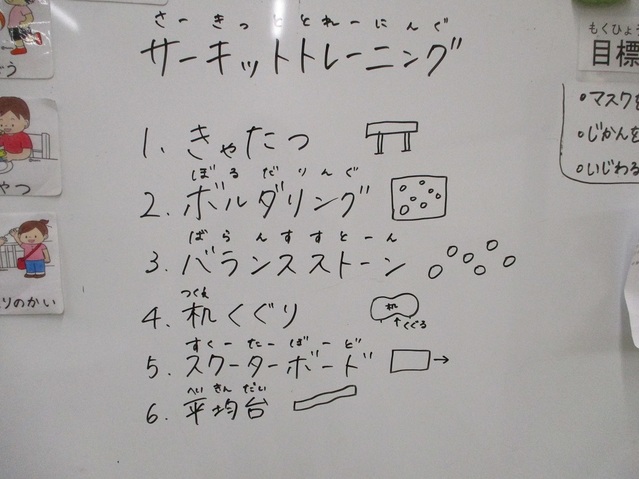 さーきっととれーにんぐ
サーキットトレーニング
1. きゃたつ
ぼるだりんぐ
2. ボルダリング
ばらんすすとーん
3. バランスストーン
つくえ
4. 机くぐり
机
↑くぐる
すくーたーぼーど
5. スクーターボード
へいきんだい
6. 平均台
もくひょう
目標
・マスクを
・じかんを
・いじわる
う
やつ
りのかい